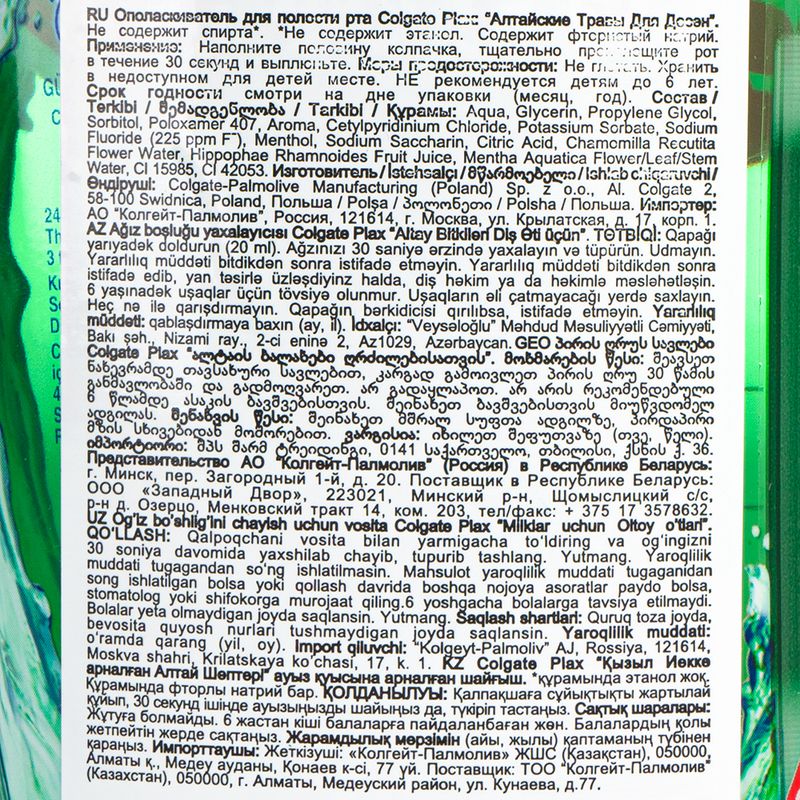 RU Ополаскиватель для полости рта Colgate Plax "Алтайские Травы Для Десен".
Не содержит спирта*. *Не содержит этанол. Содержит фтористый натрий.
Применение: Наполните половину колпачка, тщательно прополощите рот
в течение 30 секунд и выплюньте. Меры предосторожности: Не глотать. Хранить
в недоступном для детей месте. НЕ рекомендуется детям до 6 лет.
Срок годности смотри на дне упаковки (месяц, год). Состав /
Terkibi / შემადგენლობა / Tarkibi / Құрамы: Aqua, Glycerin, Propylene Glycol,
Sorbitol, Poloxamer 407, Aroma, Cetylpyridinium Chloride, Potassium Sorbate, Sodium
Fluoride (225 ppm F⁻), Menthol, Sodium Saccharin, Citric Acid, Chamomilla Recutita
Flower Water, Hippophae Rhamnoides Fruit Juice, Mentha Aquatica Flower/Leaf/Stem
Water, CI 15985, CI 42053. Изготовитель / Istehsalçı / მწარმოებელი / Ishlab chiqaruvchi /
Өндіруші: Colgate-Palmolive Manufacturing (Poland) Sp. z o.o., Al. Colgate 2,
58-100 Swidnica, Poland, Польша / Polşa / პოლონეთი / Polsha / Польша. Импортер:
АО "Колгейт-Палмолив", Россия, 121614, г. Москва, ул. Крылатская, д. 17, корп. 1.
AZ Ağız boşluğu yaxalayıcısı Colgate Plax "Altay Bitkiləri Diş Əti üçün". TƏTBİQİ: Qapağı
yarıyadək doldurun (20 ml). Ağzınızı 30 saniyə ərzində yaxalayın və tüpürün. Udmayın.
Yararlılıq müddəti bitdikdən sonra istifadə etməyin. Yararlılıq müddəti bitdikdən sonra
istifadə edib, yan təsirlə üzləşdiyinz halda, diş həkim ya da həkimlə məsləhətləşin.
6 yaşınadək uşaqlar üçün tövsiyə olunmur. Uşaqların əli çatmayacağı yerdə saxlayın.
Heç nə ilə qarışdırmayın. Qapağın bərkidicisi qırılıbsa, istifadə etməyin. Yararlılıq
müddəti: qablaşdırmaya baxın (ay, il). İdxalçı: "Veysəloğlu" Məhdud Məsuliyyətli Cəmiyyəti,
Bakı şəh., Nizami ray., 2-ci eninə 2, Az1029, Azərbaycan. GEO პირის ღრუს სავლები
Colgate Plax "ალტაის ბალახები ღრძილებისათვის". მოხმარების წესი: შეავსეთ
ნახევრამდე თავსახური სავლებით, კარგად გამოივლეთ პირის ღრუ 30 წამის
განმავლობაში და გადმოღვარეთ. არ გადაყლაპოთ. არ არის რეკომენდებული
6 წლამდე ასაკის ბავშვებისთვის. შეინახეთ ბავშვებისთვის მიუწვდომელ
ადგილას. შენახვის წესი: შეინახეთ მშრალ სუფთა ადგილზე, პირდაპირი
მზის სხივებიდან მოშორებით. ვარგისია: იხილეთ შეფუთვაზე (თვე, წელი).
იმპორტიორი: შპს შარმ ტრეიდინგი, 0141 საქართველო, თბილისი, ქსნის ქ. 36.
Представительство АО "Колгейт-Палмолив" (Россия) в Республике Беларусь:
г. Минск, пер. Загородный 1-й, д. 20. Поставщик в Республике Беларусь:
ООО «Западный Двор», 223021, Минский р-н, Щомыслицкий с/с,
р-н д. Озерцо, Менковский тракт 14, ком. 203, тел/факс: + 375 17 3578632.
UZ Og'iz bo'shlig'ini chayish uchun vosita Colgate Plax "Milklar uchun Oltoy o'tlari".
QO'LLASH: Qalpoqchani vosita bilan yarmigacha to'ldiring va og'ingizni
30 soniya davomida yaxshilab chayib, tupurib tashlang. Yutmang. Yaroqlilik
muddati tugagandan so'ng ishlatilmasin. Mahsulot yaroqlilik muddati tugaganidan
song ishlatilgan bolsa yoki qollash davrida boshqa nojoya asoratlar paydo bolsa,
stomatolog yoki shifokorga murojaat qiling.6 yoshgacha bolalarga tavsiya etilmaydi.
Bolalar yeta olmaydigan joyda saqlansin. Yutmang. Saqlash shartlari: Quruq toza joyda,
bevosita quyosh nurlari tushmaydigan joyda saqlansin. Yaroqlilik muddati:
o'ramda qarang (yil, oy). Import qiluvchi: "Kolgeyt-Palmoliv" AJ, Rossiya, 121614,
Moskva shahri, Krilatskaya ko'chasi, 17, k. 1. KZ Colgate Plax "Қызыл Иекке
арналған Алтай Шөптері" ауыз қуысына арналған шайғыш. *құрамында этанол жоқ.
Құрамында фторлы натрий бар. ҚОЛДАНЫЛУЫ: Қалпақшаға сұйықтықты жартылай
құйып, 30 секунд ішінде ауызыңызды шайыңыз да, түкіріп тастаңыз. Сақтық шаралары:
Жұтуға болмайды. 6 жастан кіші балаларға пайдаланбаған жөн. Балалардың қолы
жетпейтін жерде сақтаңыз. Жарамдылық мерзімін (айы, жылы) қаптаманың түбінен
қараңыз. Импорттаушы: Жеткізуші: «Колгейт-Палмолив» ЖШС (Қазақстан), 050000,
Алматы қ., Медеу ауданы, Қонаев к-сі, 77 үй. Поставщик: ТОО "Колгейт-Палмолив"
(Казахстан), 050000, г. Алматы, Медеуский район, ул. Кунаева, д.77.